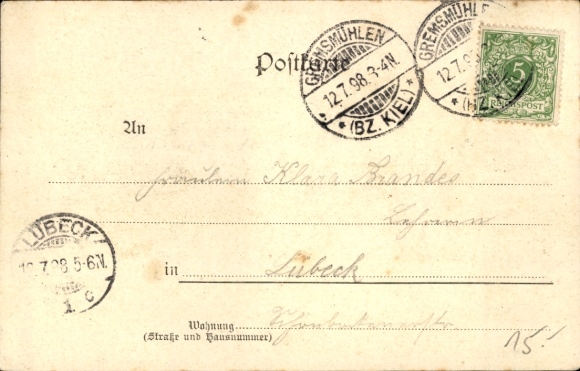 Postkarte
GREMSMÜHLEN
12.7.98.3-4N.
* (BZ. KIEL) *
GREMSMÜHLEN
12.7.98
* (BZ. KIEL)
5
REICHSPOST
An
Fräulein Klara Brandes
Lehrerin
LÜBECK
12.7.98 5-6N.
1 c
in Lübeck
Wohnung
(Straße und Hausnummer)
15.-